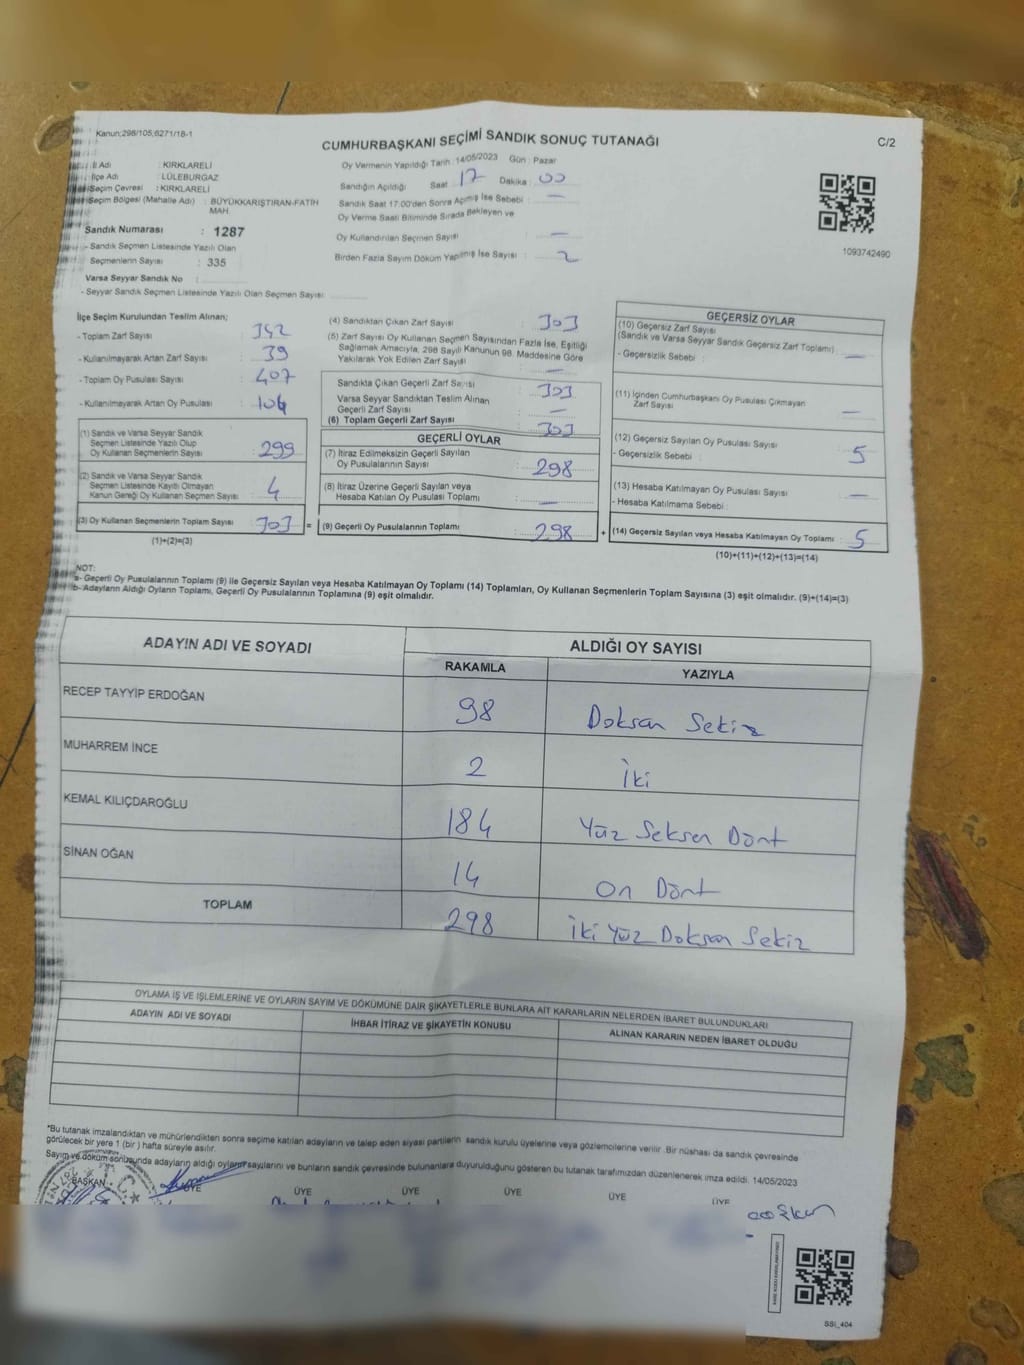 Kanun;298/105,6271/18-1
CUMHURBAŞKANI SEÇİMİ SANDIK SONUÇ TUTANAĞI
C/2
İl Adı : KIRKLARELİ
İlçe Adı : LÜLEBURGAZ
Seçim Çevresi : KIRKLARELİ
Seçim Bölgesi (Mahalle Adı) : BÜYÜKKARIŞTIRAN-FATİH MAH.
Sandık Numarası : 1287
- Sandık Seçmen Listesinde Yazılı Olan
Seçmenlerin Sayısı : 335
Varsa Seyyar Sandık No :
- Seyyar Sandık Seçmen Listesinde Yazılı Olan Seçmen Sayısı:
Oy Vermenin Yapıldığı Tarih : 14/05/2023 Gün : Pazar
Sandığın Açıldığı Saat : 17 Dakika : 00
Sandık Saat 17:00'den Sonra Açılmış İse Sebebi : —
Oy Verme Saati Bitiminde Sırada Bekleyen ve
Oy Kullandırılan Seçmen Sayısı : —
Birden Fazla Sayım Döküm Yapılmış İse Sayısı : 2
1093742490
İlçe Seçim Kurulundan Teslim Alınan;
- Toplam Zarf Sayısı : 342
- Kullanılmayarak Artan Zarf Sayısı : 39
- Toplam Oy Pusulası Sayısı : 407
- Kullanılmayarak Artan Oy Pusulası : 104
(1) Sandık ve Varsa Seyyar Sandık
Seçmen Listesinde Yazılı Olup
Oy Kullanan Seçmenlerin Sayısı : 299
(2) Sandık ve Varsa Seyyar Sandık
Seçmen Listesinde Kayıtlı Olmayan
Kanun Gereği Oy Kullanan Seçmen Sayısı : 4
(3) Oy Kullanan Seçmenlerin Toplam Sayısı : 303 =
(1)+(2)=(3)
(4) Sandıktan Çıkan Zarf Sayısı : 303
(5) Zarf Sayısı Oy Kullanan Seçmen Sayısından Fazla İse, Eşitliği
Sağlamak Amacıyla, 298 Sayılı Kanunun 98. Maddesine Göre
Yakılarak Yok Edilen Zarf Sayısı : —
Sandıkta Çıkan Geçerli Zarf Sayısı : 303
Varsa Seyyar Sandıktan Teslim Alınan
Geçerli Zarf Sayısı : —
(6) Toplam Geçerli Zarf Sayısı : 303
GEÇERLİ OYLAR
(7) İtiraz Edilmeksizin Geçerli Sayılan
Oy Pusulalarının Sayısı : 298
(8) İtiraz Üzerine Geçerli Sayılan veya
Hesaba Katılan Oy Pusulası Toplamı : —
(9) Geçerli Oy Pusulalarının Toplamı : 298 +
GEÇERSİZ OYLAR
(10) Geçersiz Zarf Sayısı
(Sandık ve Varsa Seyyar Sandık Geçersiz Zarf Toplamı) : —
- Geçersizlik Sebebi :
(11) İçinden Cumhurbaşkanı Oy Pusulası Çıkmayan
Zarf Sayısı : —
(12) Geçersiz Sayılan Oy Pusulası Sayısı : 5
- Geçersizlik Sebebi :
(13) Hesaba Katılmayan Oy Pusulası Sayısı : —
- Hesaba Katılmama Sebebi :
(14) Geçersiz Sayılan veya Hesaba Katılmayan Oy Toplamı : 5
(10)+(11)+(12)+(13)=(14)
NOT:
a- Geçerli Oy Pusulalarının Toplamı (9) ile Geçersiz Sayılan veya Hesaba Katılmayan Oy Toplamı (14) Toplamları, Oy Kullanan Seçmenlerin Toplam Sayısına (3) eşit olmalıdır. (9)+(14)=(3)
b- Adayların Aldığı Oyların Toplamı, Geçerli Oy Pusulalarının Toplamına (9) eşit olmalıdır.
ADAYIN ADI VE SOYADI ALDIĞI OY SAYISI
RAKAMLA YAZIYLA
RECEP TAYYİP ERDOĞAN 98 Doksan Sekiz
MUHARREM İNCE 2 İki
KEMAL KILIÇDAROĞLU 184 Yüz Seksen Dört
SİNAN OĞAN 14 On Dört
TOPLAM 298 İki Yüz Doksan Sekiz
OYLAMA İŞ VE İŞLEMLERİNE VE OYLARIN SAYIM VE DÖKÜMÜNE DAİR ŞİKAYETLERLE BUNLARA AİT KARARLARIN NELERDEN İBARET BULUNDUKLARI
ADAYIN ADI VE SOYADI İHBAR İTİRAZ VE ŞİKAYETİN KONUSU ALINAN KARARIN NEDEN İBARET OLDUĞU
*Bu tutanak imzalandıktan ve mühürlendikten sonra seçime katılan adayların ve talep eden siyasi partilerin sandık kurulu üyelerine veya gözlemcilerine verilir .Bir nüshası da sandık çevresinde
görülecek bir yere 1 (bir ) hafta süreyle asılır.
Sayım ve döküm sonusunda adayların aldığı oyların sayılarını ve bunların sandık çevresinde bulunanlara duyurulduğunu gösteren bu tutanak tarafımızdan düzenlenerek imza edildi. 14/05/2023
BAŞKAN ÜYE ÜYE ÜYE ÜYE ÜYE ÜYE
SSI_404